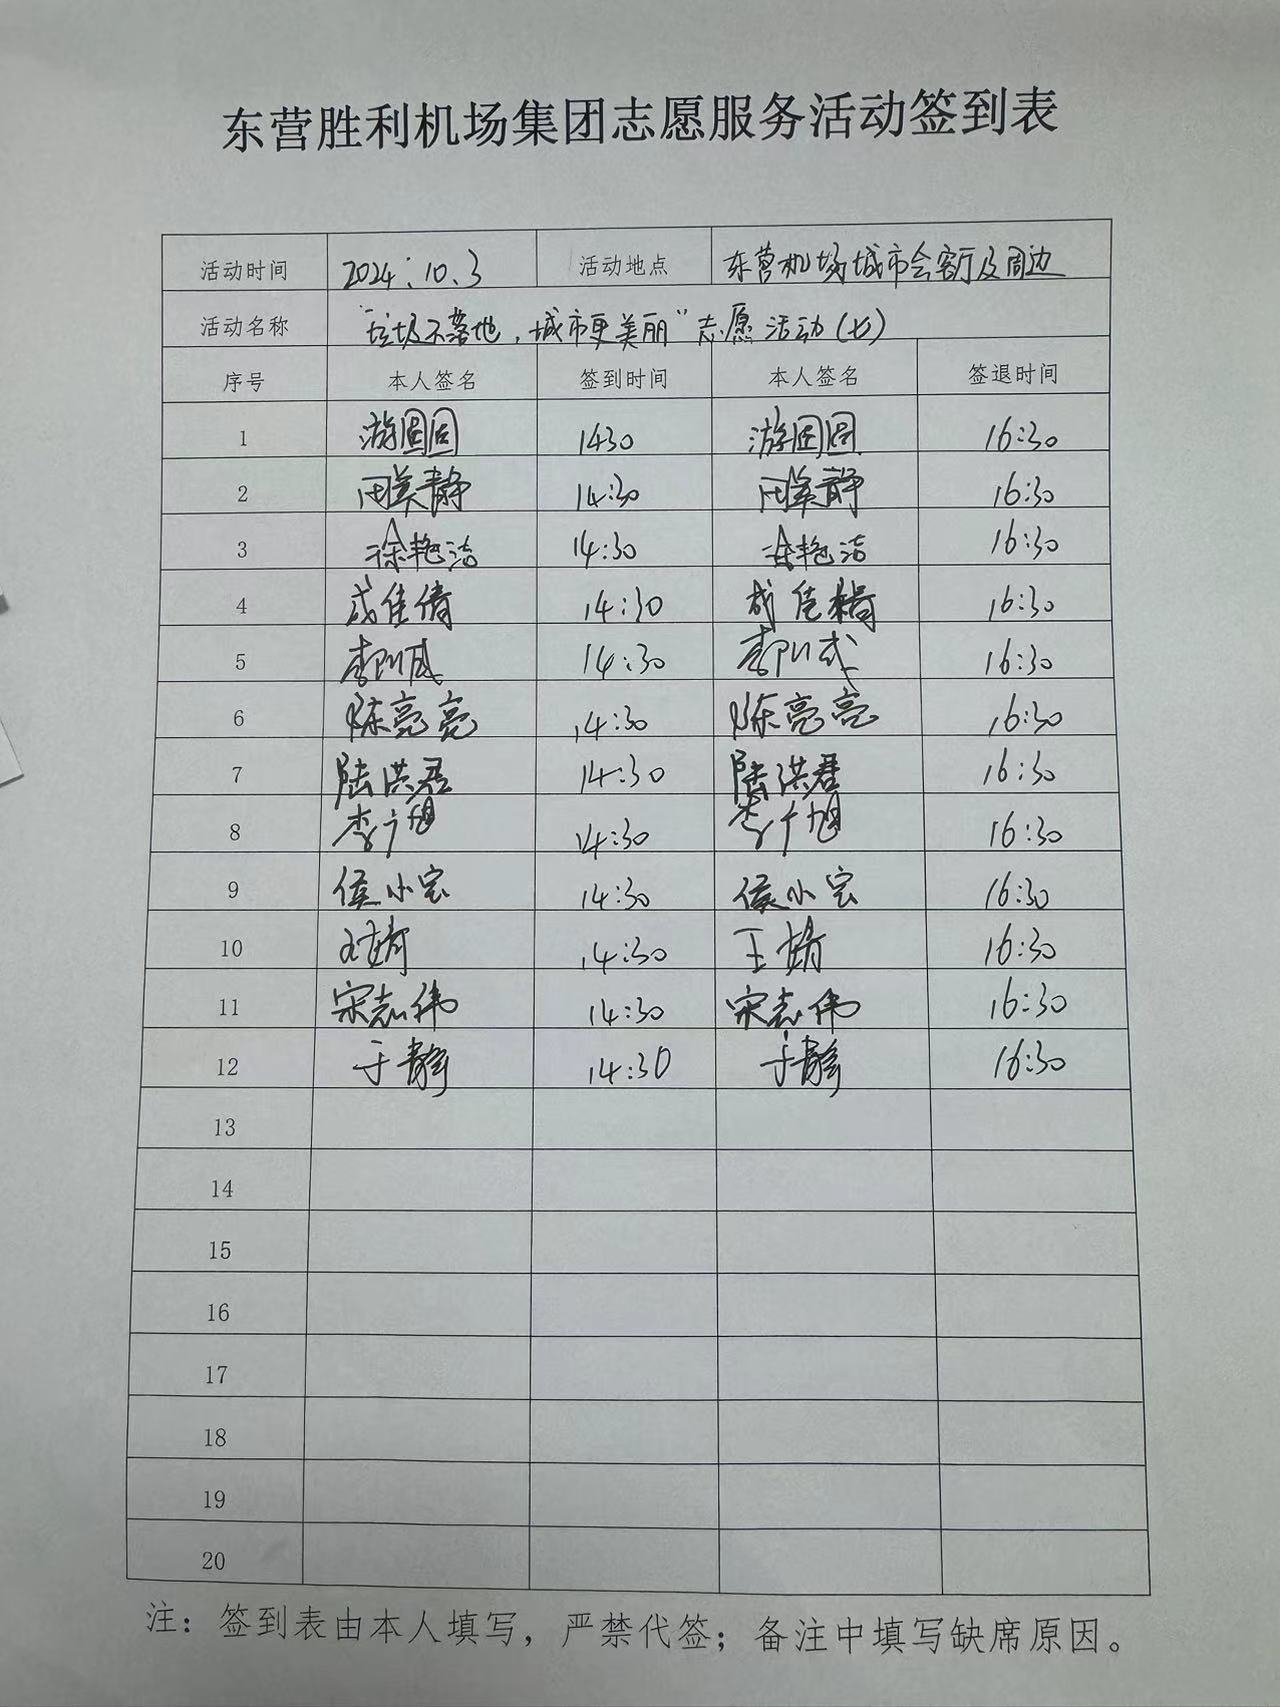 东营胜利机场集团志愿服务活动签到表
活动时间 2024.10.3 活动地点 东营机场城市会客厅及周边
活动名称 "垃圾不落地,城市更美丽"志愿活动(七)
序号 本人签名 签到时间 本人签名 签退时间
1 游圆圆 1430 游圆圆 16:30
2 田美静 14:30 田美静 16:30
3 徐艳洁 14:30 徐艳洁 16:30
4 成佳倩 14:30 成佳 16:30
5 14:30 16:30
6 陈亮亮 14:30 陈亮亮 16:30
7 陆洪君 14:30 陆洪君 16:30
8 李广旭 14:30 李广旭 16:30
9 侯小宝 14:30 侯小宝 16:30
10 王婧 14:30 王婧 16:30
11 宋志伟 14:30 宋志伟 16:30
12 于静 14:30 于静 16:30
13
14
15
16
17
18
19
20
注:签到表由本人填写,严禁代签;备注中填写缺席原因。